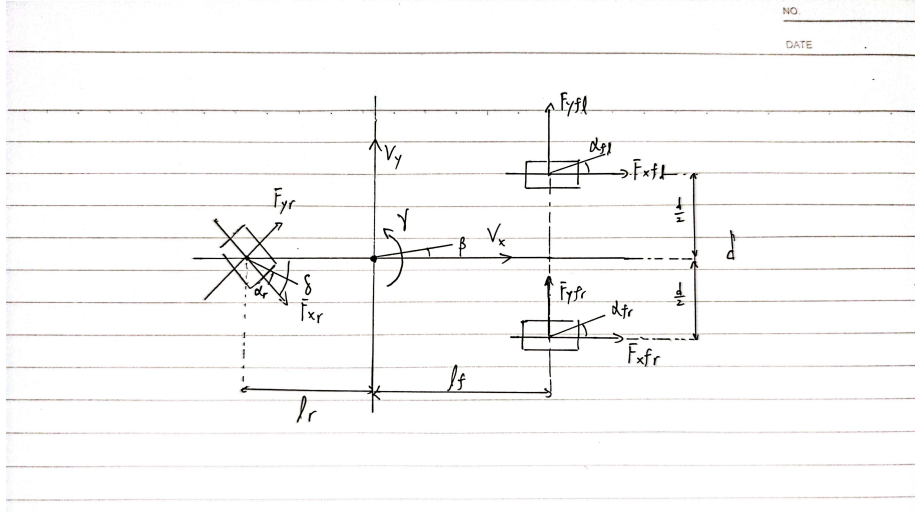 NO.
DATE
Fyfl
Vy
αfl
Fxfl
d/2
Fyr
γ
β
Vx
d
δ
αr
Fxr
Fyfr
αfr
d/2
Fxfr
lf
lr